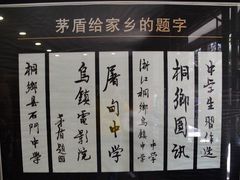 茅盾给家乡的题字
中学生习作选
桐鄉图讯
浙江桐鄉乌镇中学
屠甸中学
乌鎮電影院
茅盾題
桐鄉县石門中学